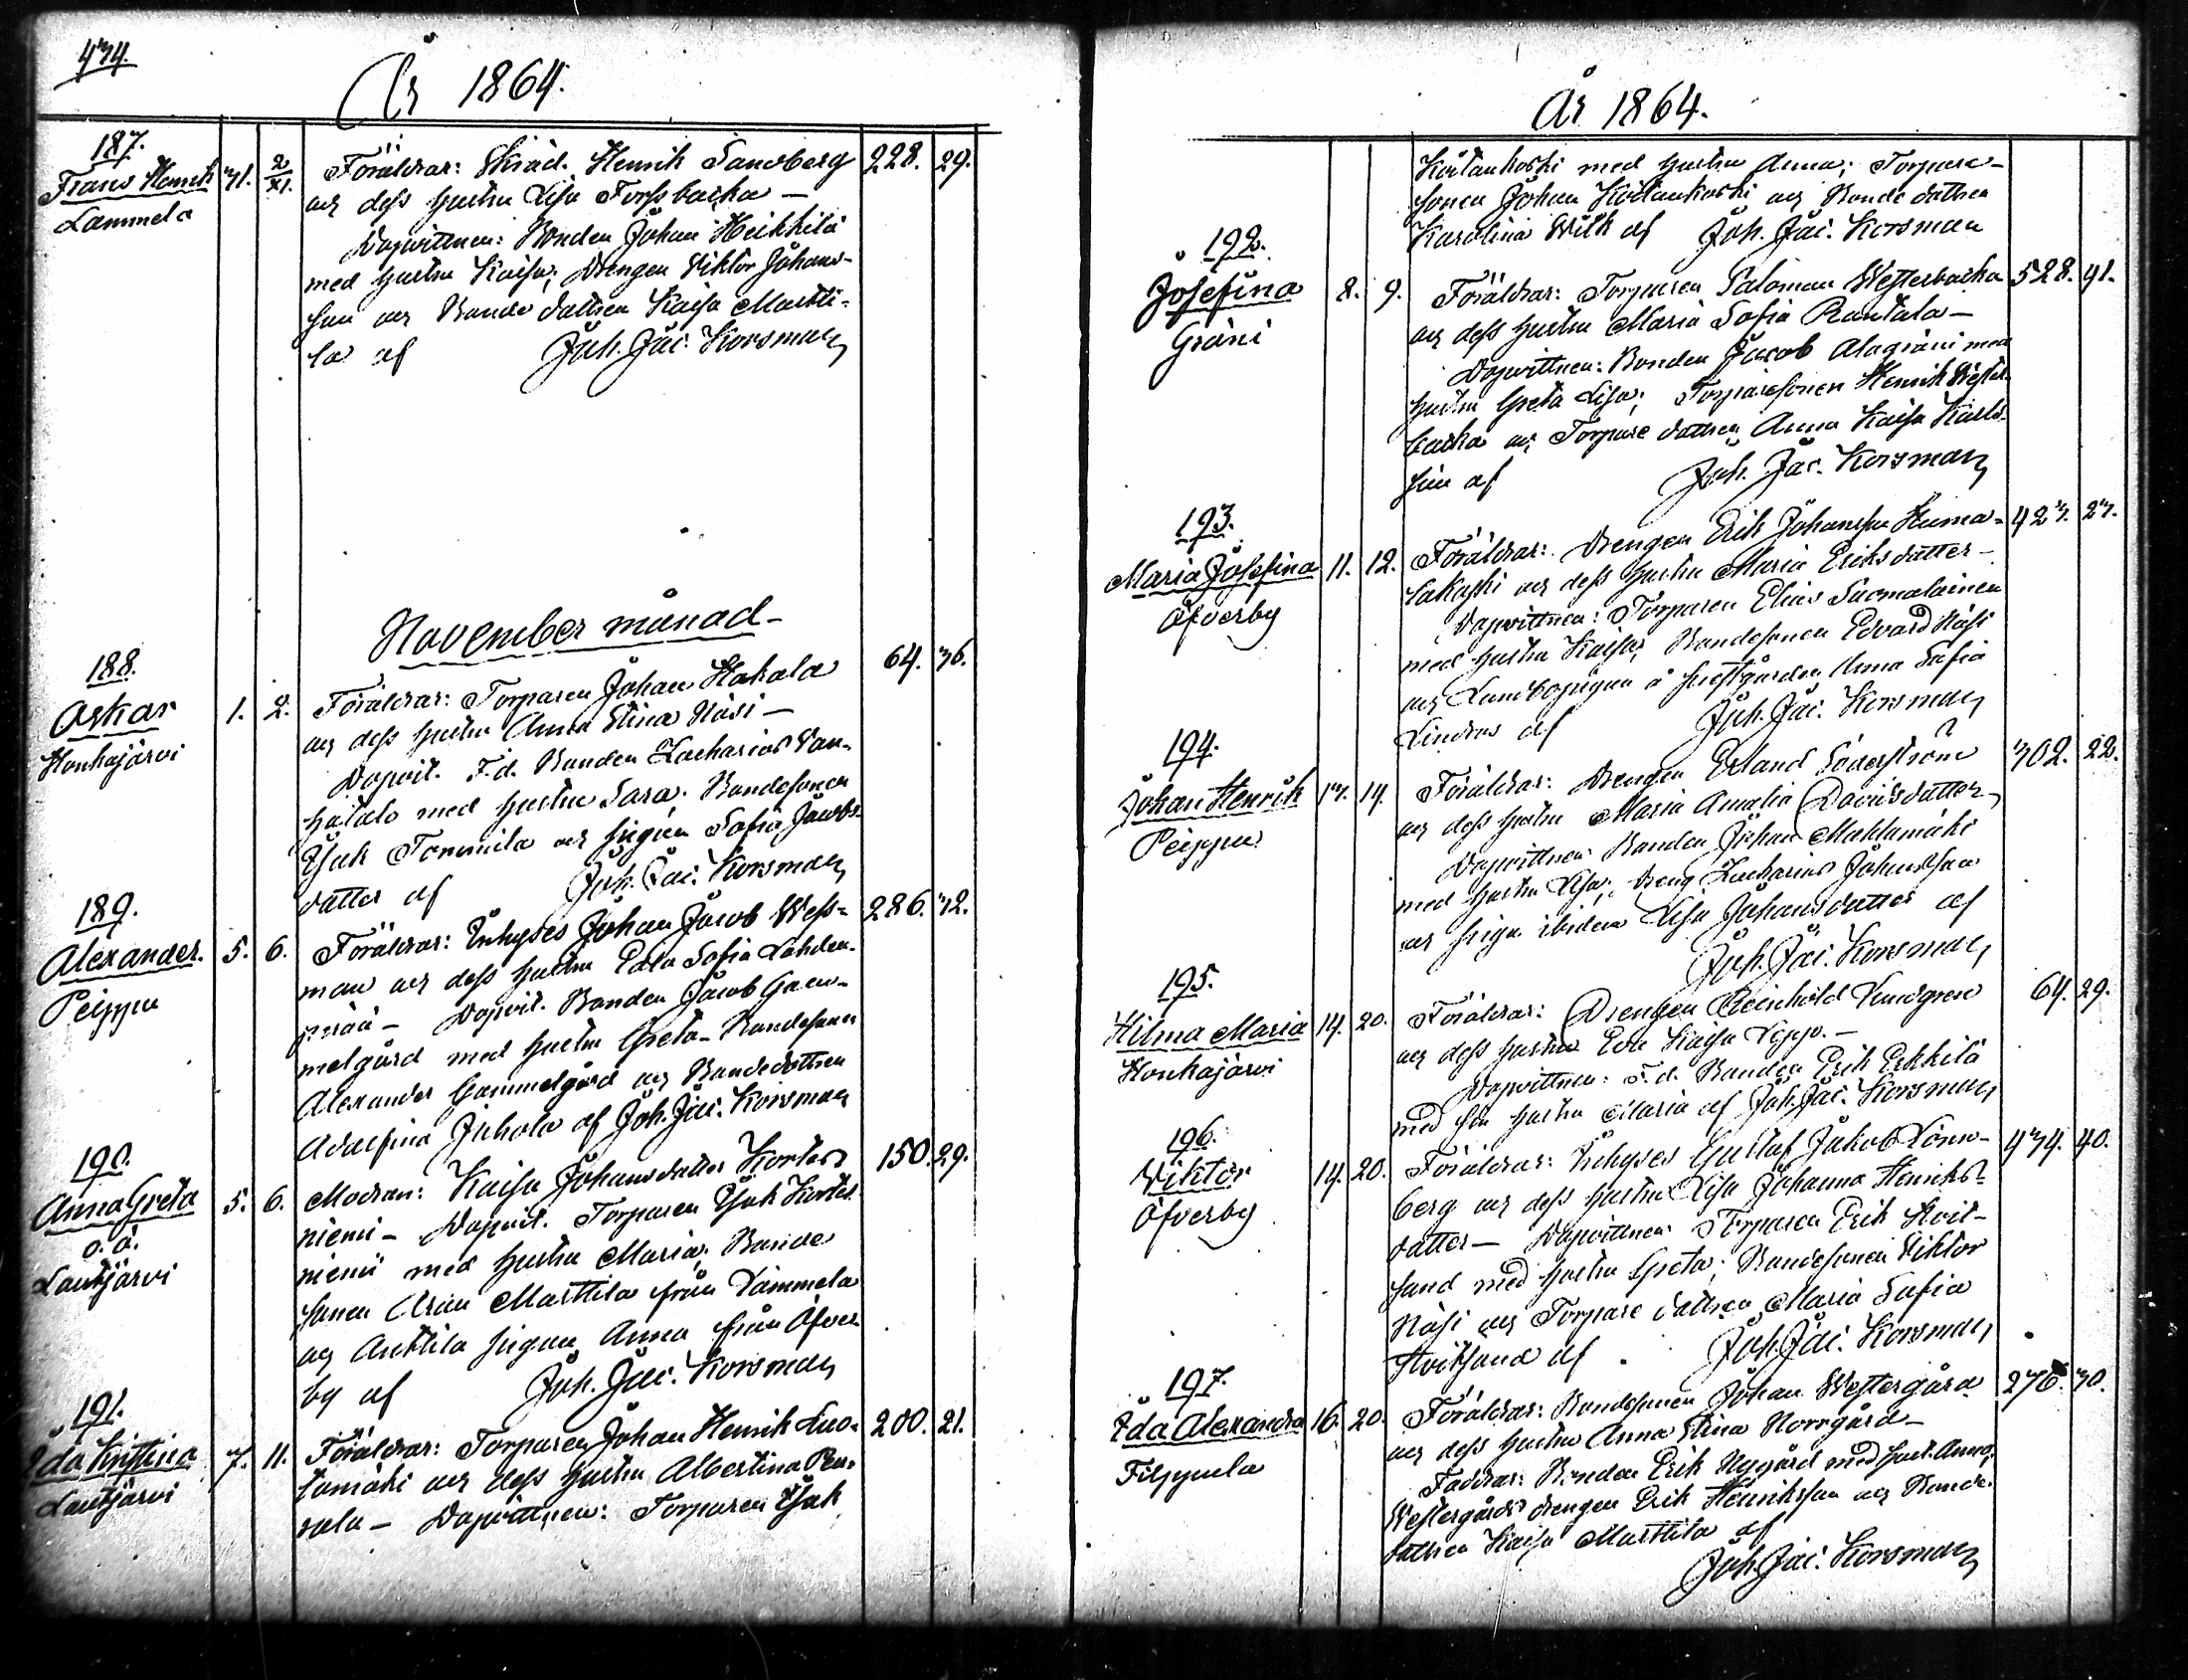 474.
År 1864.
187.
Frans Henrik 31. 2/XI. Föräldrar: Skräd. Henrik Sandberg 228. 29.
Lammela
och dess hustru Lisa Forssbacka —
Dopvittnen: Bonden Johan Heikkilä
med hustru Kaisa; Drengen Viktor Johans-
son och Bonde dottren Kaisa Martti-
la af Joh. Jac. Korsman
November månad —
188.
Oskar 1. 2. Föräldrar: Torparen Johan Hakala 64. 36.
Honkajärvi
och dess hustru Anna Stina Näsi —
Dopvit. F.d. Bonden Zacharias Van-
hatalo med hustru Sara; Bondesonen
Isak Tommila och pigan Sofia Jacobs-
dotter af Joh. Jac. Korsman
189.
Alexander. 5. 6. Föräldrar: Inhyses Johan Jacob Wess- 286. 32.
Peippu
man och dess hustru Eva Sofia Lahden-
perä — Dopvit. Bonden Jacob Gam-
melgård med hustru Greta — Bondesonen
Alexander Gammelgård och Bondedottren
Adolfina Juhola af Joh. Jac. Korsman
190.
Anna Greta 5. 6. Modren: Kaisa Johansdotter Kortes 150. 29.
o. ä.
Lautjärvi
niemi — Dopvit. Torparen Isak Kortes
niemi med hustru Maria; Bonde
sonen Marttila från Lammela
och Anttila pigan Anna från Öfver
by af Joh. Jac. Korsman
191.
Ida Kristina 7. 11. Föräldrar: Torparen Johan Henrik Luo- 200. 21.
Lautjärvi
tamäki och dess hustru Albertina Pen-
sala — Dopvittnen: Torparen Isak
År 1864.
Koitankoski med hustru Anna; Torpare-
sonen Johan Koitankoski och Bonde dottren
Karolina Wilk af Joh. Jac. Korsman
192.
Josefina 8. 9. Föräldrar: Torparen Salomon Westerbacka 528. 41.
Gräni
och dess hustru Maria Sofia Rantala —
Dopvittnen: Bonden Jacob Alagräni med
hustru Greta Lisa; Torparesonen Henrik Wester-
backa och Torpare dottren Anna Kaisa Karls-
af Joh. Jac. Korsman
193.
Maria Josefina 11. 12. Föräldrar: Drengen Erik Johansson Huma- 423. 27.
Öfverby
lakoski och dess hustru Maria Eriksdotter —
Dopvittnen: Torparen Elias Suomalainen
med hustru Kaisa; Bondesonen Edvard Näsi
och Landbopigan å prestgården Anna Sofia
Lindros af Joh. Jac. Korsman
194.
Johan Henrik 13. 14. Föräldrar: Drengen Erland Söderström 302. 22.
Peippu
och dess hustru Maria Amalia Davidsdotter
Dopvittnen: Bonden Johan Mahlamäki
med hustru Lisa; Dreng Zacharias Johansson
och pigan ibidem Lisa Johansdotter af
Joh. Jac. Korsman
195.
Hilma Maria 14. 20. Föräldrar: Drengen Reinhold Lundgren 64. 29.
Honkajärvi
och dess hustru Eva Kaisa Leppo. —
Dopvittnen: F.d. Bonden Erik Erkkilä
med sin hustru Maria af Joh. Jac. Korsman
196.
Viktor 14. 20. Föräldrar: Inhyses Gustaf Jakob Lönn- 474. 40.
Öfverby
berg och dess hustru Lisa Johanna Henriks-
dotter — Dopvittnen: Torparen Erik Hvit-
sand med hustru Greta; Bondesonen Viktor
Näsi och Torpare dottren Maria Sofia
Hvitsand af Joh. Jac. Korsman
197.
Ida Alexandra 16. 20. Föräldrar: Bondesonen Johan Westergård 276. 30.
Filppula
och dess hustru Anna Stina Norrgård —
Faddrar: Bonden Erik Nygård med hust. Anna;
Westergårds drengen Erik Henriksson och Bonde-
dottren Kaisa Marttila af
Joh. Jac. Korsman